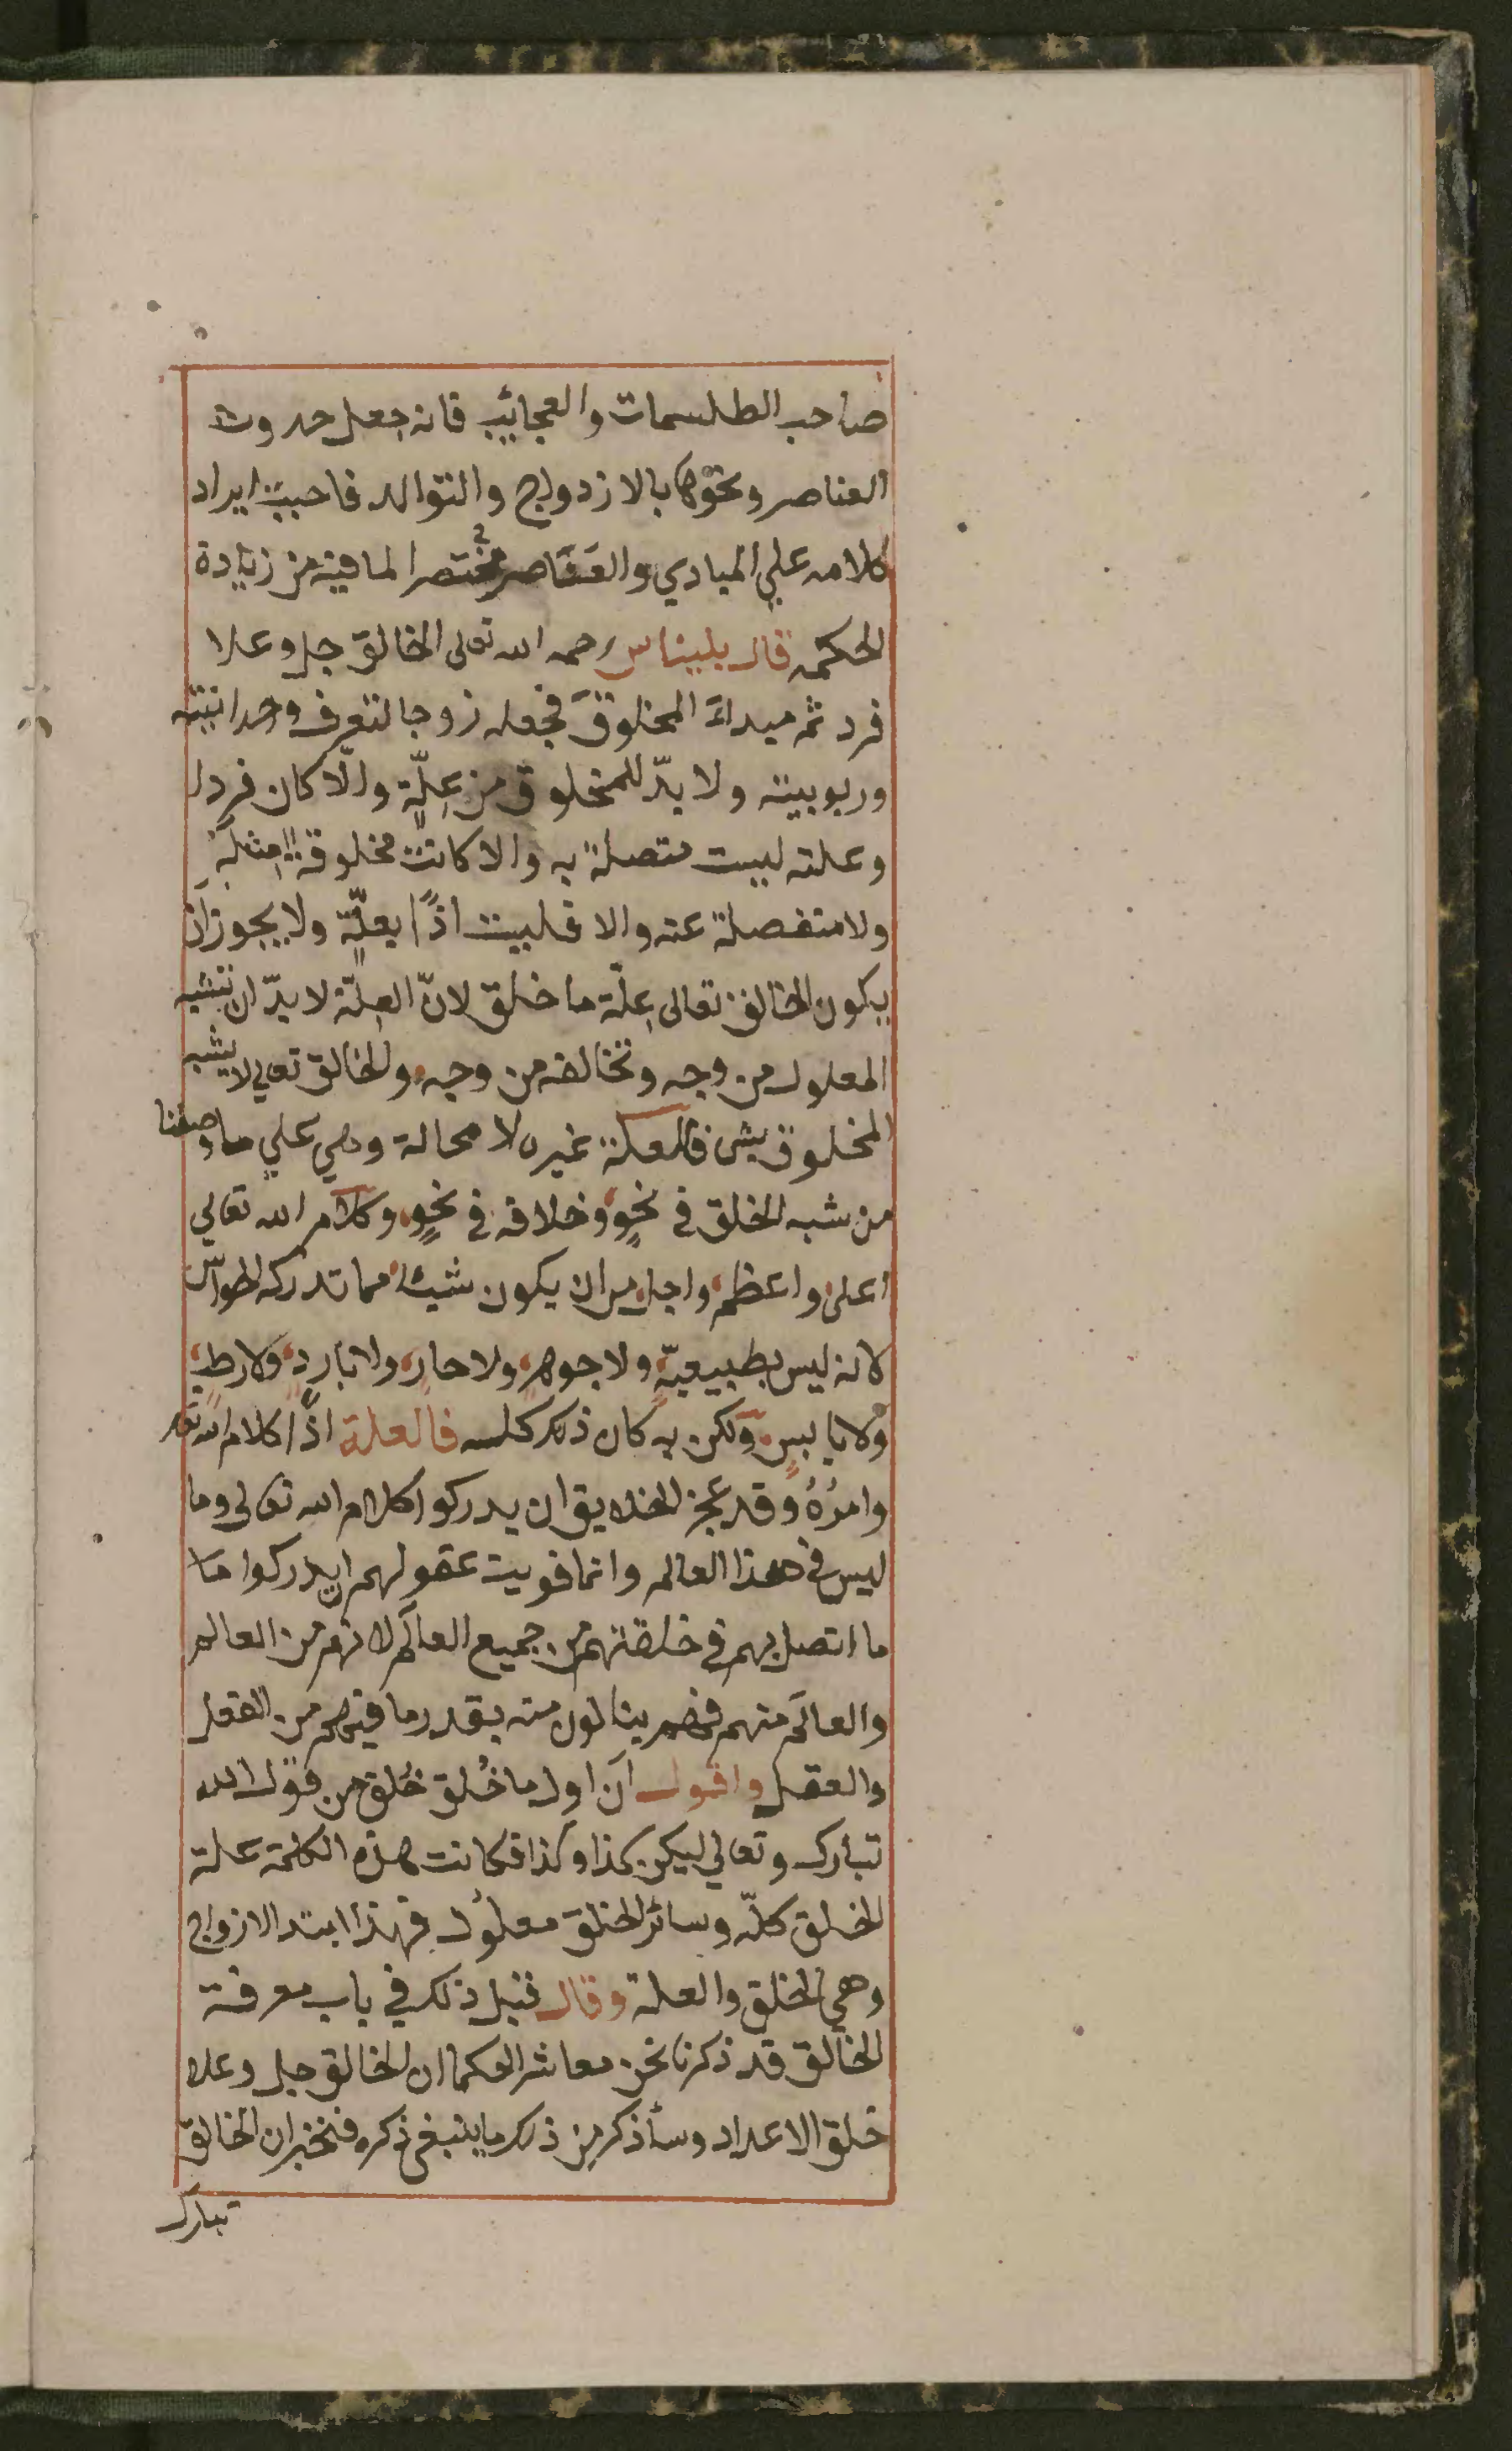 صاحب الطلسمات والعجائب فانه جعل حدوث
العناصر ونحوها بالازدواج والتوالد فاحببت ايراد
كلامه علي المبادي والعناصر مختصرا لما فيه من زيادة
الحكمه قال بليناس رحمه الله تعالى الخالق جل وعلا
فرد ثم مبداء المخلوق فجعله زوجا لتعرف وحدانيته
وربوبيته ولا بدّ للمخلوق من عِلّة والّا كان فردا
وعلته ليست متصلة به والا كانت مخلوقة مثله
ولا منفصلة عنه والا فليست اذًا بعلّة ولا يجوز ان
يكون الخالق تعالى علّة ما خلق لانّ العلّة لا بدّ ان تشبه
المعلول من وجه وتخالفه من وجه والخالق تعالي لا يشبه
المخلوق بشئ فالعلة غيره لا محالة وهي علي ما وصفنا
من شبه الخلق في نحوٍ وخلافه في نحوٍ وكلام الله تعالي
اعلى واعظم واجل من ان يكون شيئا مما تدركه الحواسّ
لانه ليس بطبيعيّة ولا جوهر ولا حار ولا بارد ولا رطب
ولا يابس ولكن به كان ذلك كله فالعلة اذًا كلام الله تعا
وامرُهُ وقد عجز الخلايق ان يدركوا كلام الله تعالى وما
ليس في هذا العالم وانما قويت عقولهم ان يدركوا ما
ما اتصل بهم في خلقتهم من جميع العالم لانهم من العالم
والعالم منهم فهم ينالون منه بقدر ما فيهم من الفعل
والعقل واقول انّ اول ما خُلق خُلق من قول الله
تبارك وتعالي ليكن كذا وكذا فكانت هذه الكلمة علة
الخلق كلّه وسائر الخلق معلول فهذا ابتدا الازواج
وهي الخلق والعلة وقال قبل ذلك في باب معرفة
الخالق قد ذكرنا نحن معاشر الحكما ان الخالق جل وعلا
خلق الاعداد وسأذكر من ذلك ما ينبغي ذكره فنخبر ان الخالق
تبارك